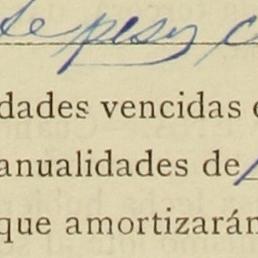 de pesos
dades vencidas
anualidades de
que amortizarán